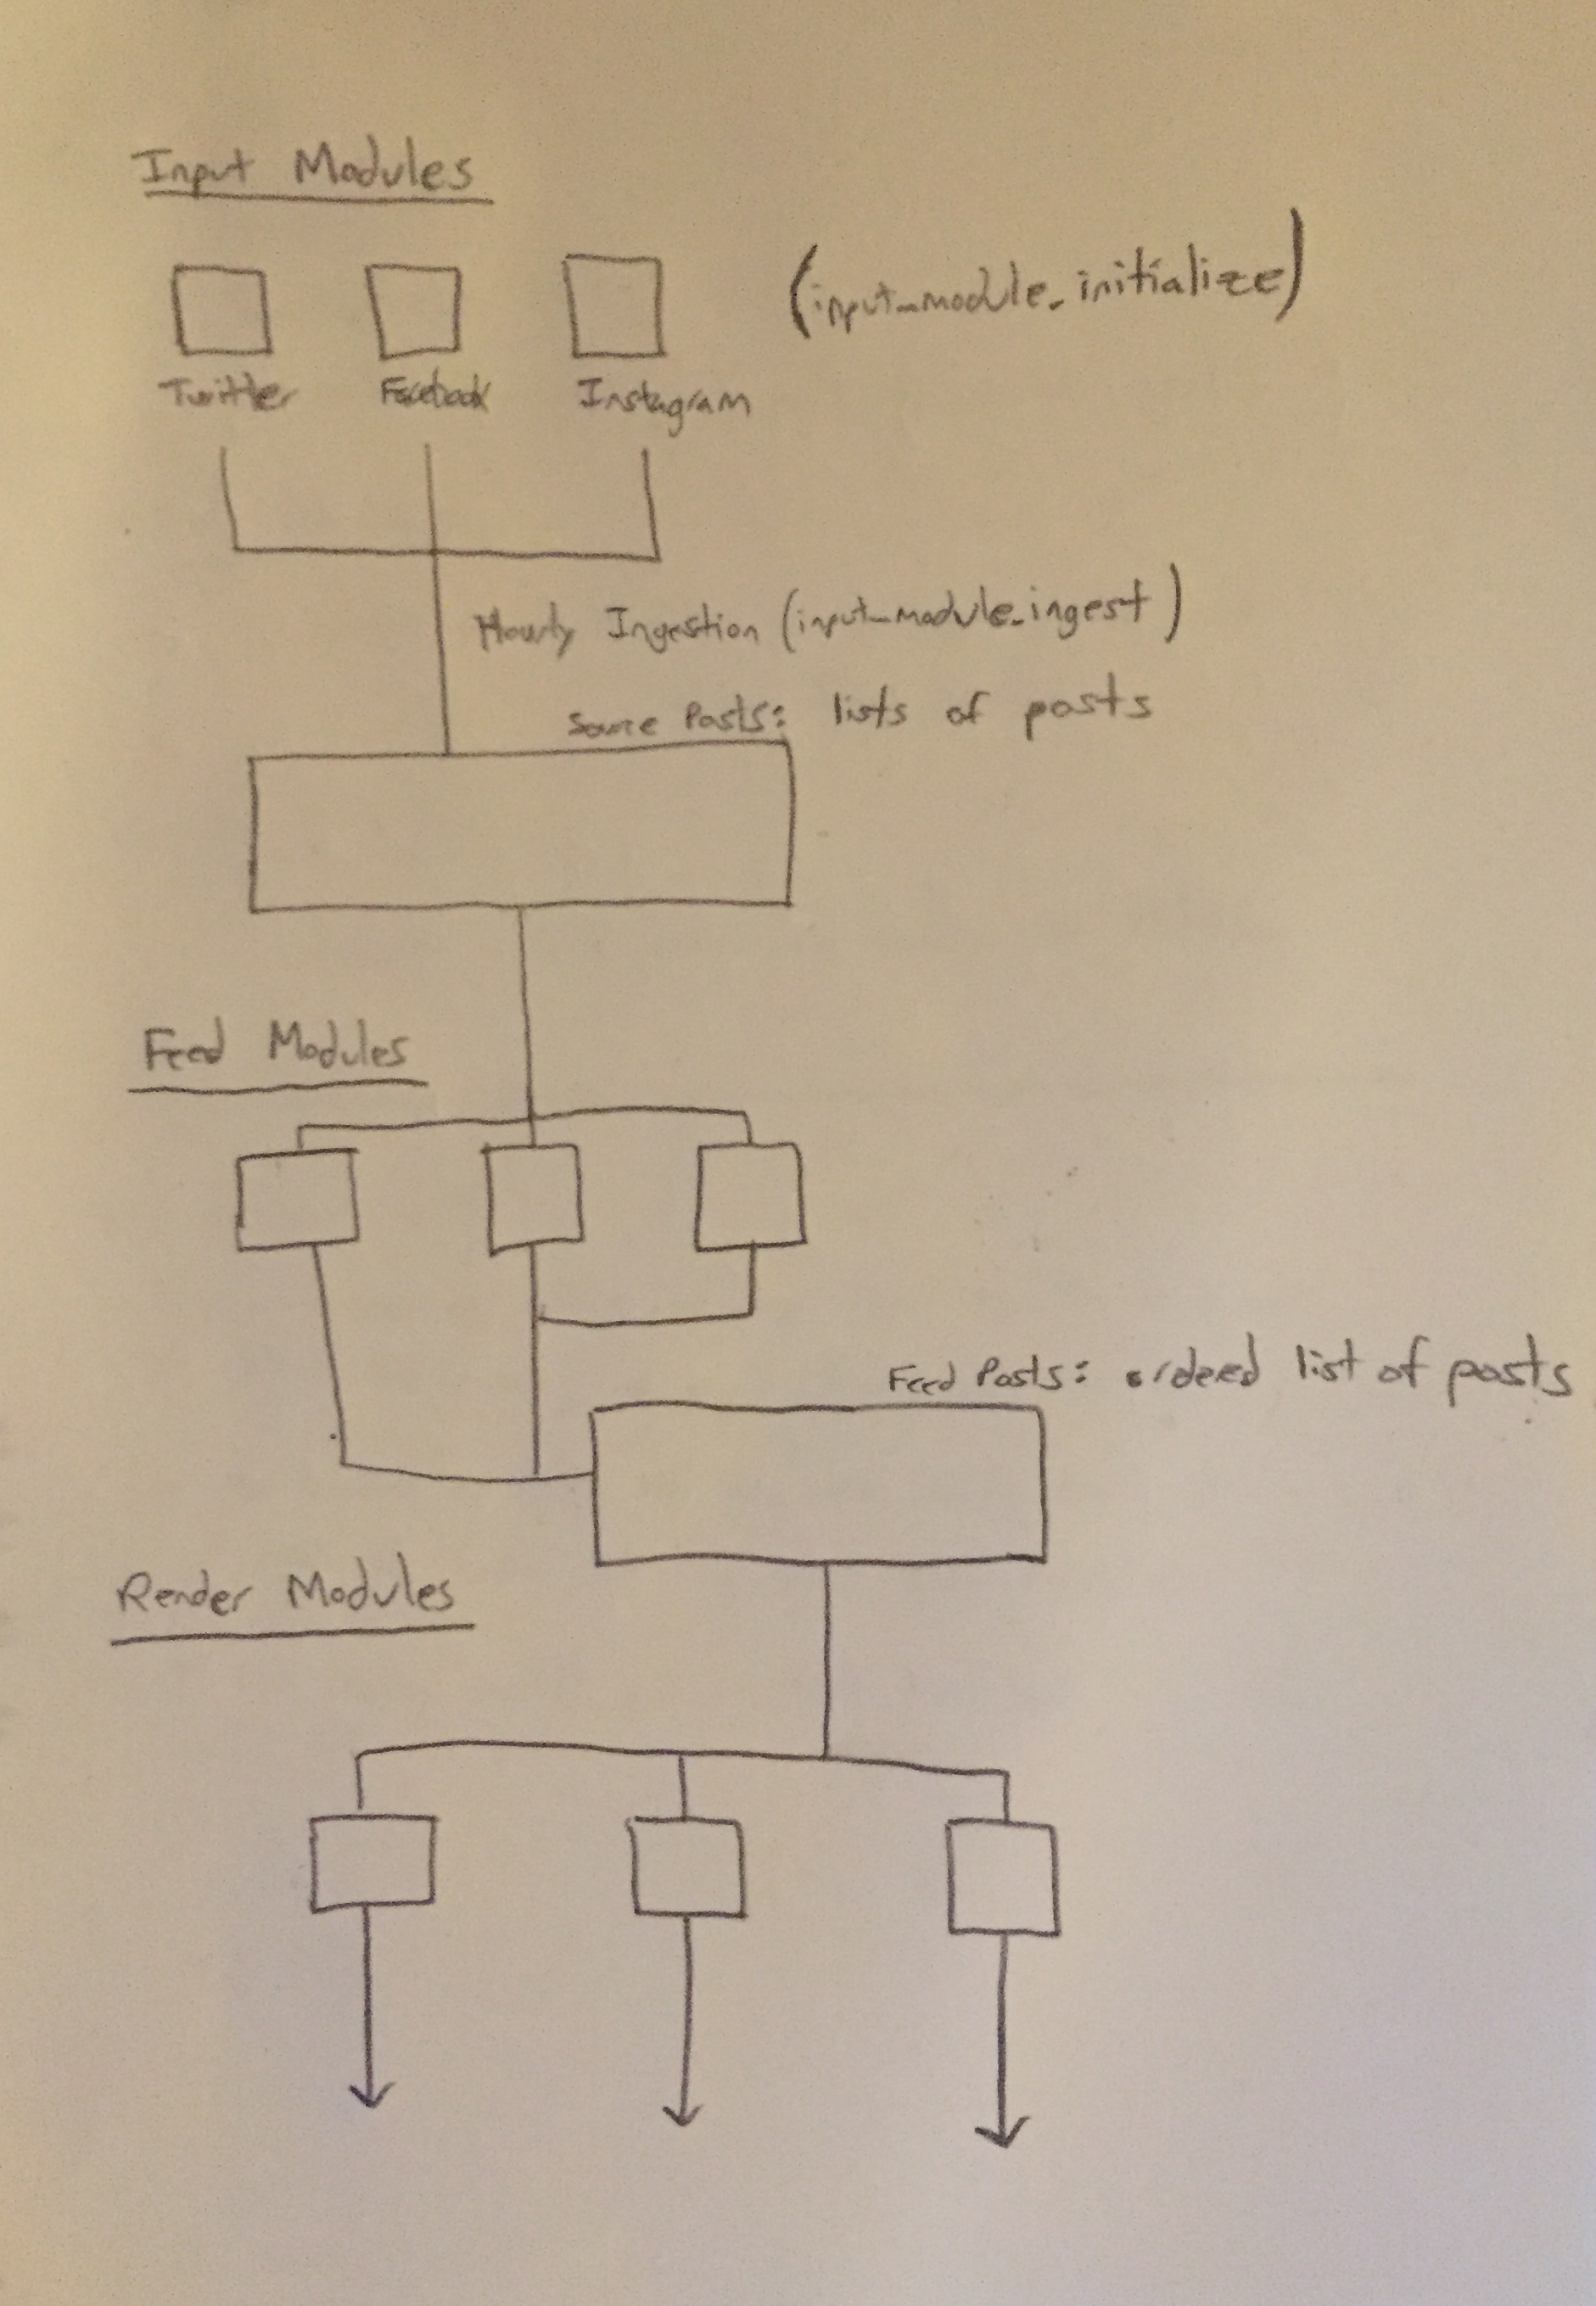 Input Modules
(input_module_initialize)
Twitter Facebook Instagram
Hourly Ingestion (input_module_ingest)
Source Posts: lists of posts
Feed Modules
Feed Posts: ordered list of posts
Render Modules